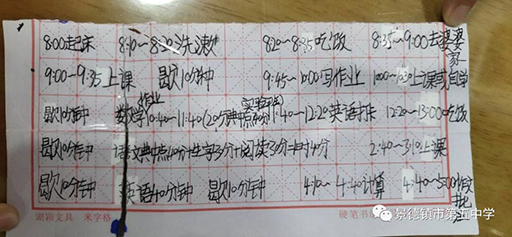 8:00起床 8:10~8:20洗漱 8:20~8:35吃饭 8:35~9:00去婆婆家
9:00~9:35上课 歇10分钟 9:45~10:00写作业 10:00~10:30上课或自学
歇10分钟 数学作业10:40~11:40(20分典中点 实验班) 11:40~12:20英语打卡 12:20~13:00吃饭
歇10分钟 语文典中点 生字30分 阅读 2:40~3:10上课
歇10分钟 英语40分钟 歇10分钟 4:10~4:40计算 4:40~5:00
潁颖文具 米字格 硬笔书
景德镇市第五中学